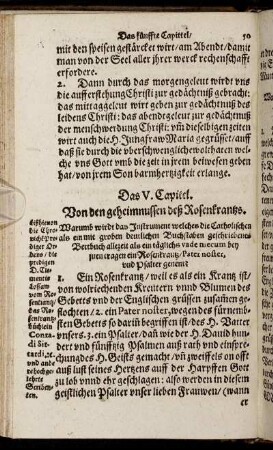 Das fünffte Capittel/ 50
mit den speisen gestärcket wirt/ am Abende/ damit
man von der Seel aller jhrer werck rechenschafft
erfordere.
2. Dann durch das morgengeleut wirdt vns
die aufferstehung Christi zur gedächtnuß gebracht:
das mittaggeleut wirt geben zur gedächtnuß des
leidens Christi: das abendgeleut zur gedächtnuß
der menschwerdung Christi: vnd dieselbigen zeiten
wirt auch die H. Jungfraw Maria gegrüsset/ auff
daß sie durch die vberschwengliche wolthaten welche
vns Gott vmb die zeit in jrem beiwesen geben
hat/ von jrem Son barmhertzigkeit erlange.
Das V. Capitel.
Von den geheimnussen deß Rosenkrantzs.
Warumb wirdt das Instrument welches die Catholischen
als ein mit groben deutlichen Buchstaben geschriebenes
Betbuch allezeit als ein täglichs vade mecum bey
jnen tragen ein Rosenkrantz/ Pater noster,
und Psalter genent?
die Chro-
Prediger Or-
dens/ die
predigen
D. Cle-
mentis
vom Ro-
senkrantz/
das Ro-
senkrantz-
büchlein
Conra-
di Sit-
tardi, &c.
und ande-
re hochge-
lehrte
1. Ein Rosenkrantz/ weil es als ein Krantz ist/
von wolriechenden Kreutern vnnd Blumen des
Gebetts vnd der Englischen grüssen zusamen ge-
flochten/ 2. ein Pater noster, wegen des fürnemb-
sten Gebetts so darin begriffen ist/ des H. Vatter
vnsers. 3. ein Psalter/ daß wie der H. Dauid hun-
dert vnd fünfftzig Psalmen auß rath vnd einspre-
chung des H. Geists gemacht/ vn zweiffels on offt
auß lust seines Hertzens auff der Harpffen Gott
zu lob vnnd ehr geschlagen: also werden in diesem
geistlichen Psalter vnser lieben Frauwen/ (wann
er